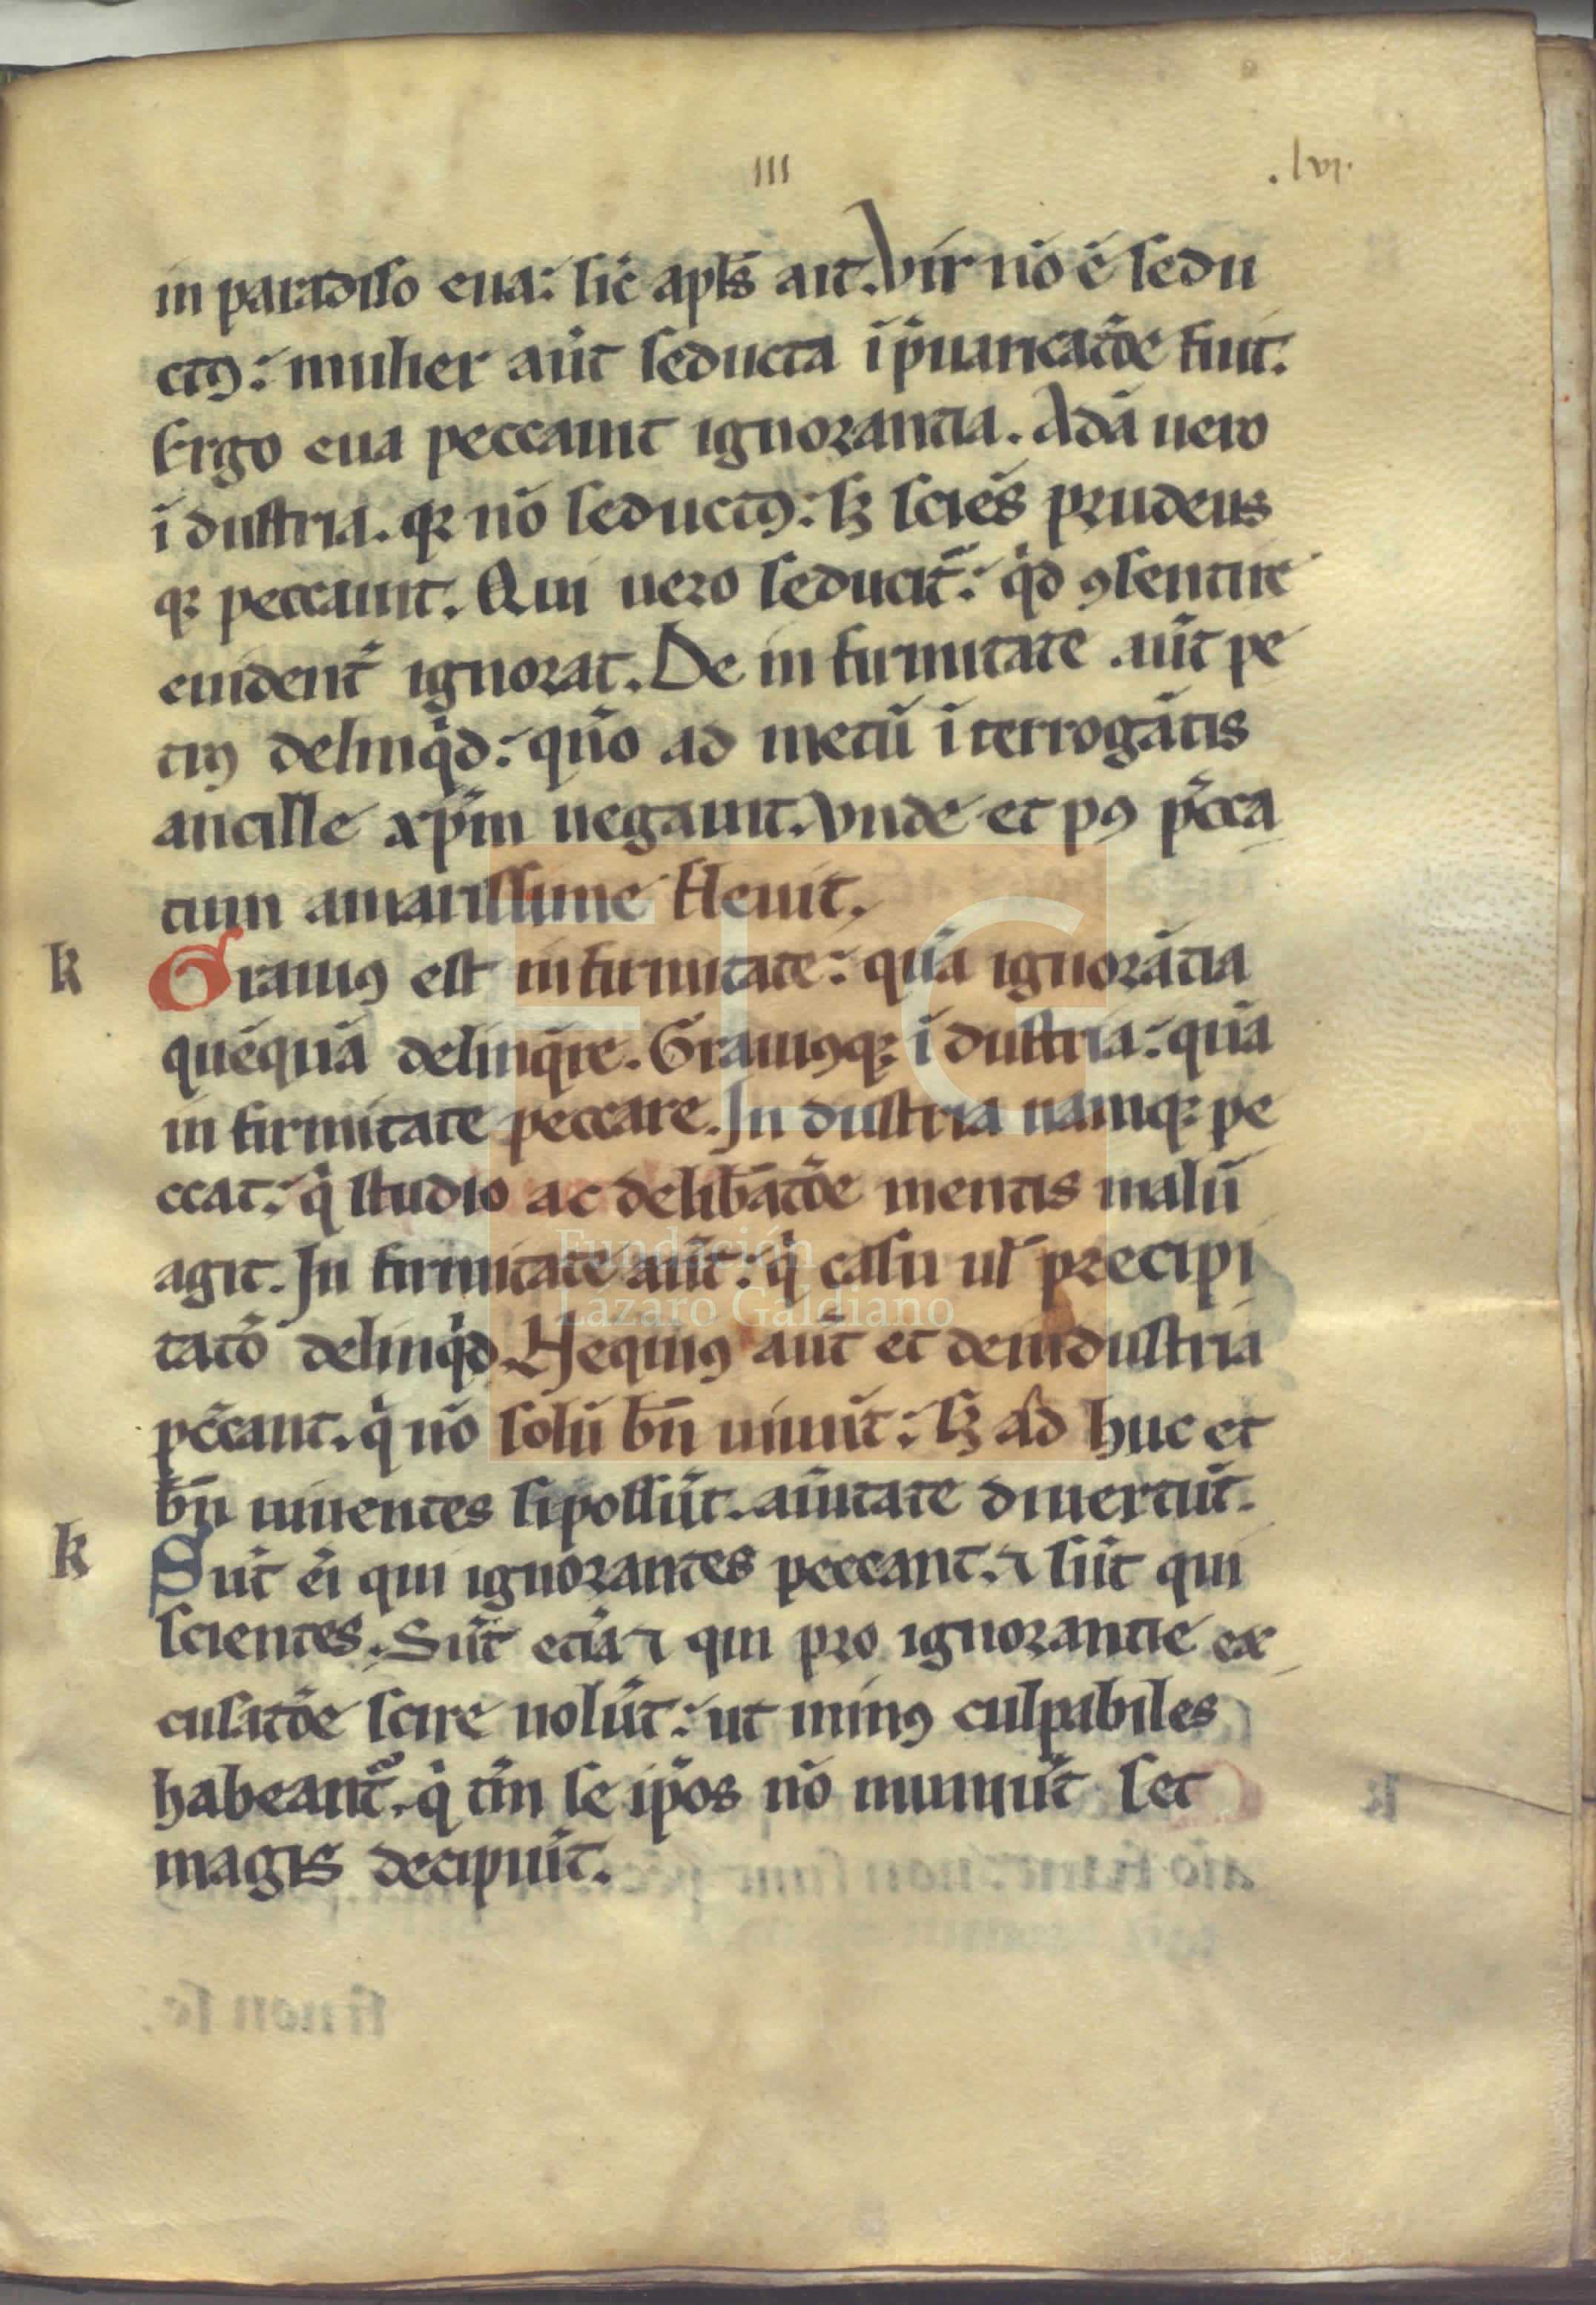 III .lvi.
in paradiso eua: sic̄ apl̄s ait. Vir nō ē sedu
ctꝯ: mulier aūt seducta ī p̄uaricatōe fuit.
Ergo eua peccauit ignorantia. Adā uero
ī dustria. qꝛ nō seductꝯ: sꝫ sciēs prudens
qꝫ peccauit. Qui uero seducit᷑: qͥd ꝯsentire
euident̄ ignorat. De in firmitate aūt pe
trꝯ delinqͥd: qn̄o ad metū ī terrogātis
ancille xp̄m negauit. Vnde et pꝯ pc̄ca
tum amarissime fleuit.
k Grauiꝯ est in firmitate: quā ignorātia
quēquā delinqͥre. Grauiꝯqꝫ ī dustria: quā
in firmitate peccare. In dustria namqꝫ pe
ccat: qͥ studio ac delib̄atōe mentis malū
agit. In firmitate aūt: qͥ casu ul̄ precipi
tatō delinqͥd. Nequiꝯ aūt et deindustria
pc̄cant. qͥ nō solū bn̄ uiuūt: sꝫ ad huc et
bn̄ uiuentes si possūt. auītate diuertūt.
k Sūt ei̅ qui ignorantes peccant. ⁊ sūt qui
scientes. Sūt etiā ⁊ qui pro ignorantie ex
cusatōe scire nolūt: ut minꝯ culpabiles
habeant᷑. qͥ tm̄ se ip̄os nō muniūt set
magis decipiūt.
Fundación
Lázaro Galdiano
FLG